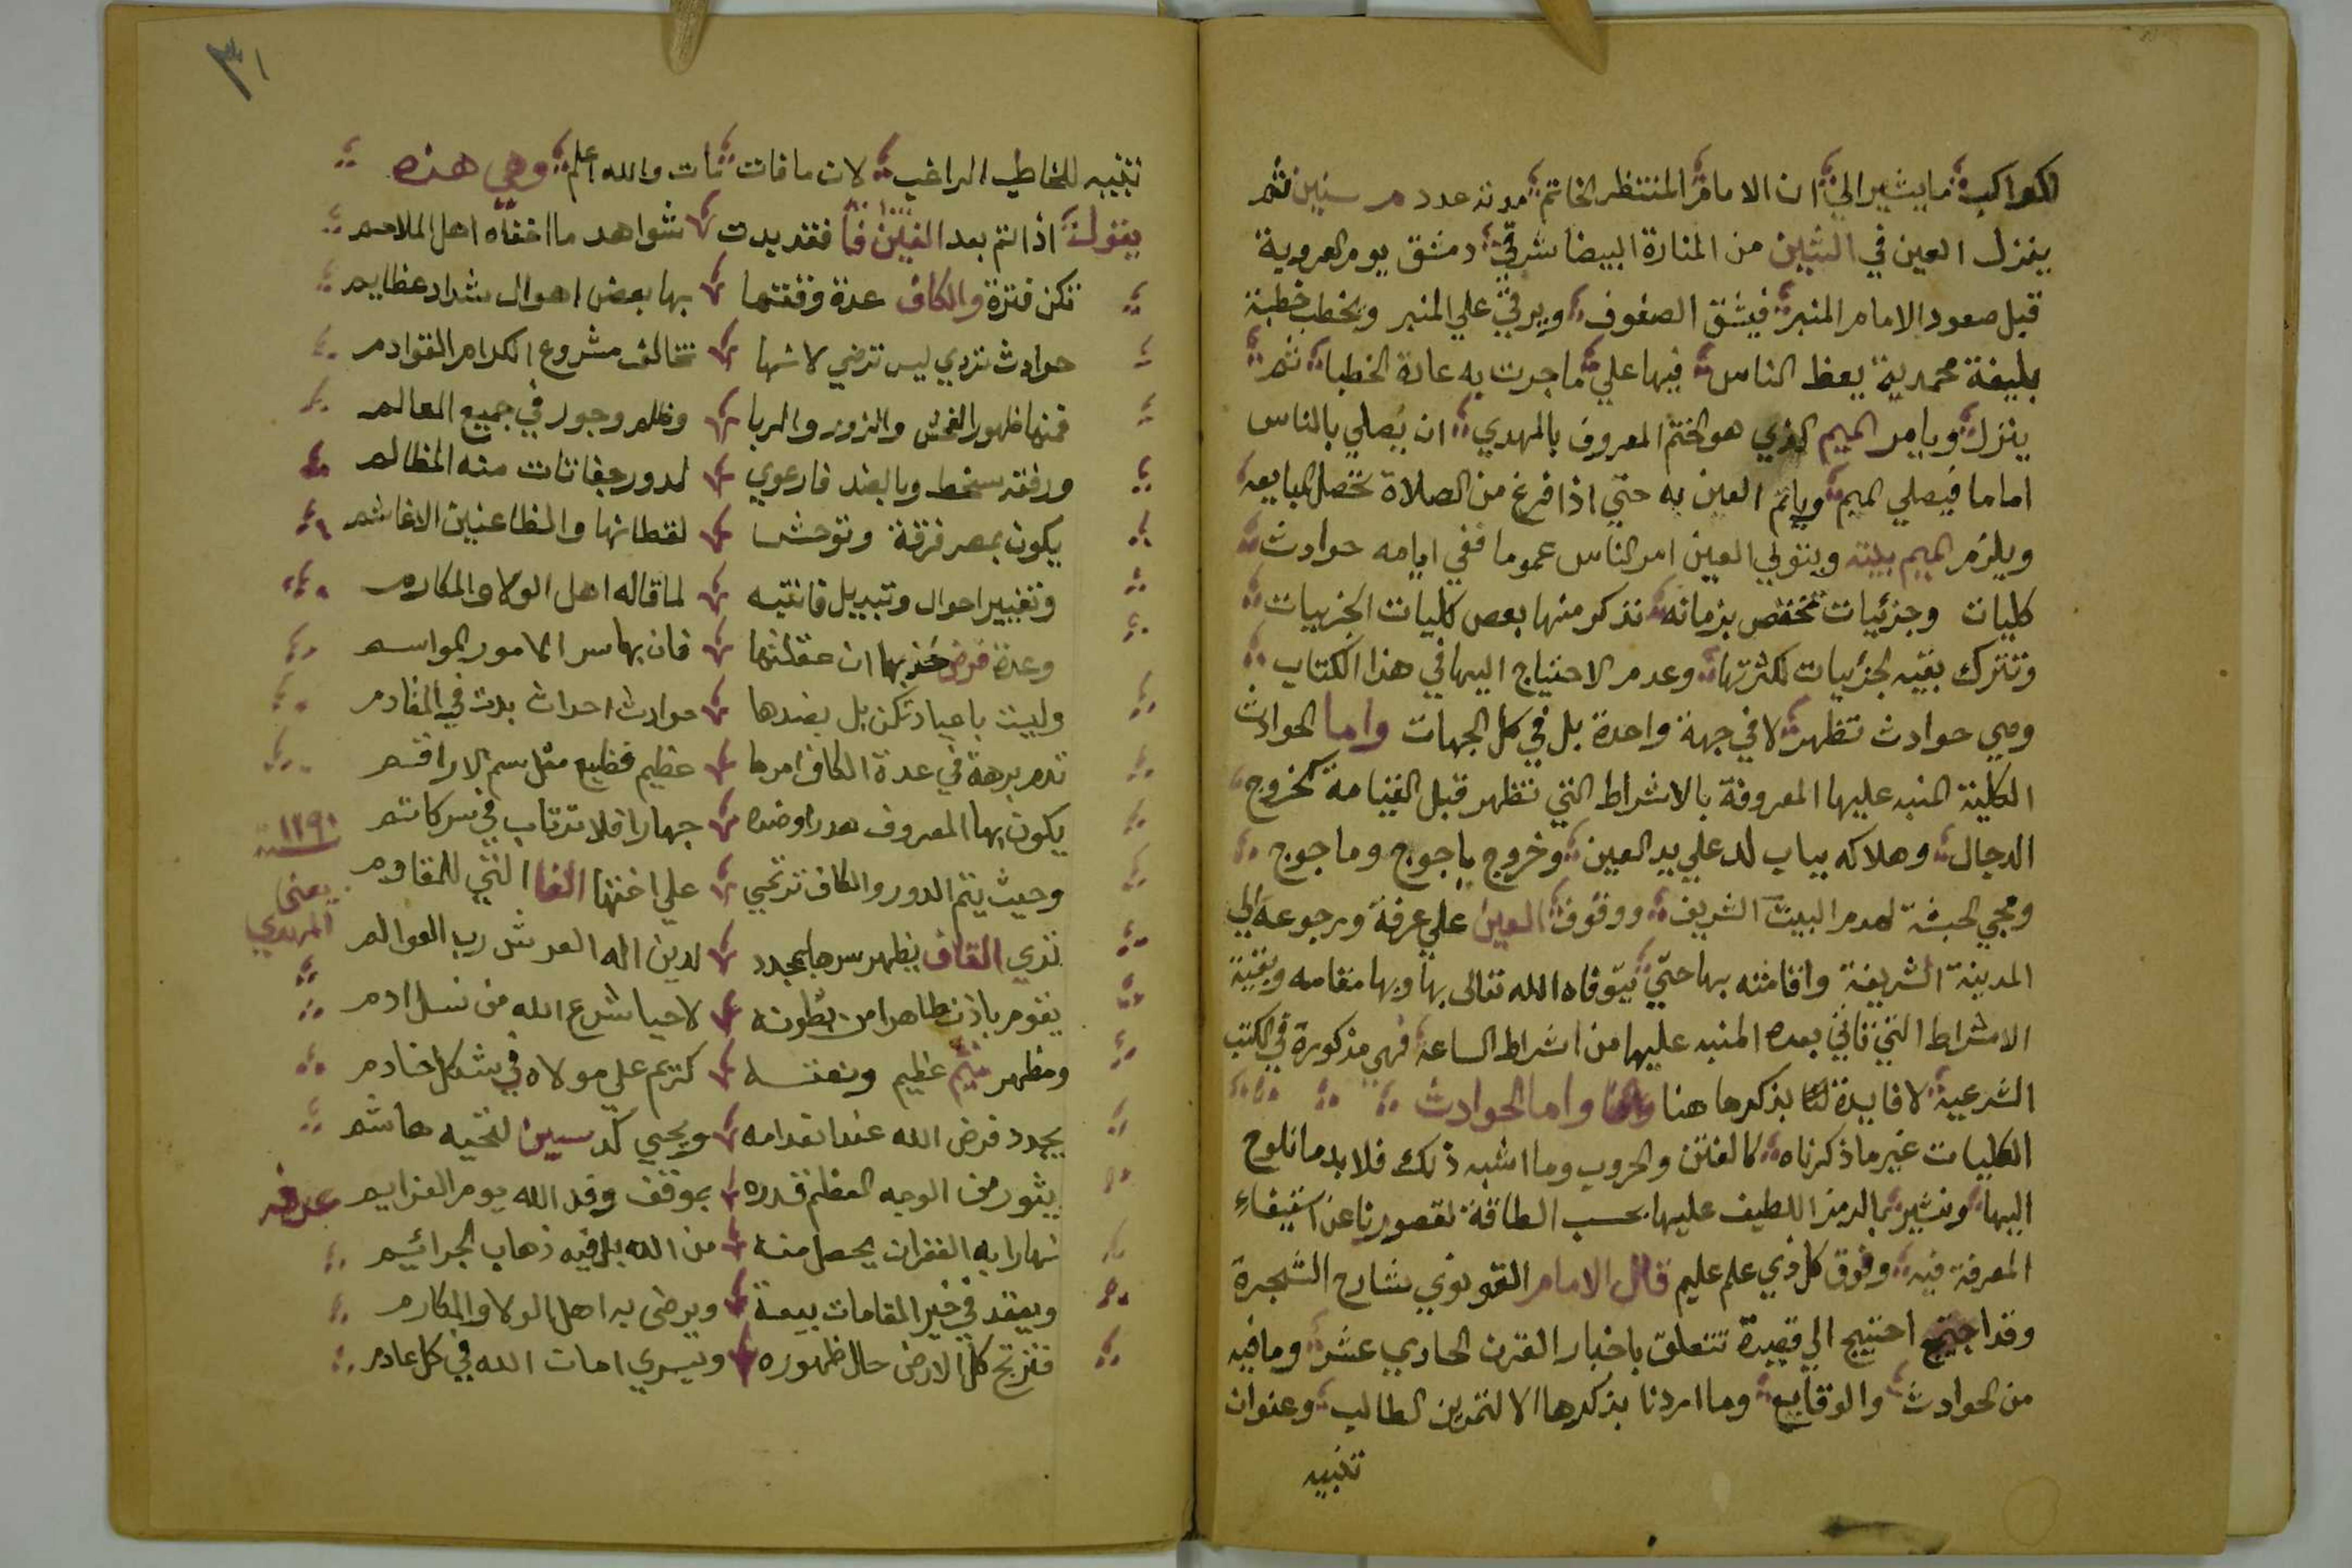 الكواكب ما يشير الي ان الامام المنتظر الخاتم مدته عدد م سنين ثم
ينزل العين في اثنين من المنارة البيضا شرقي دمشق يوم العروبة
قبل صعود الامام المنبر فيشق الصفوف ويرقي علي المنبر ويخطب خطبة
بليغة محمدية يعظ الناس فيها علي ما جرت به عادة الخطبا ثم
ينزل ويامر الميم الذي هو الختم المعروف بالمهدي ان يصلي بالناس
اماما فيصلي الميم وياتم العين به حتي اذا فرغ من الصلاة تحصل المبايعه
ويلزم الميم بيته ويتولي العين امر الناس عموما ففي ايامه حوادث
كليات وجزئيات تختص بزمانه نذكر منها بعض كليات الجزييات
ونترك بقيه الجزئيات لكثرتها وعدم الاحتياج اليها في هذا الكتاب
وهي حوادث تظهر لا في جهة واحدة بل في كل الجهات واما الحوادث
الكلية المنبه عليها المعروفة بالاشراط التي تظهر قبل القيامة كخروج
الدجال وهلاكه بباب لد علي يد العين وخروج ياجوج وماجوج
ومجي الحبشة لهدم البيت الشريف ووقوف العين علي عرفة ورجوعه الي
المدينة الشريفة واقامته بها حتي يتوفاه الله تعالى بها وبها مقامه وبقية
الاشراط التي تاتي بعده المنبه عليها من اشراط الساعة فهي مذكورة في الكتب
الشرعية لا فايدة لنا بذكرها هنا واما الحوادث
الكليات غير ما ذكرناه كالفتن والحروب وما اشبه ذلك فلا بد ما نلوح
اليها ونشير بالرمز اللطيف عليها بحسب الطاقة لقصورنا عن استيفاء
المعرفة فيه وفوق كل ذي علم عليم قال الامام القونوي شارح الشجرة
وقد احتيج الي قصيدة تتعلق باخبار القرن الحادي عشر وما فيه
من الحوادث والوقايع وما اردنا بذكرها الا لتمرين الطالب وعنوان
تنبيه
٣١
تنبيه للخاطب الراغب لان ما فات مات والله اعلم وهي هذه
يقول اذا تم بعد الفين فا فقد بدت شواهد ما اخفاه اهل الملاحم
تكن فترة والكاف عدة وقتها بها بعض اهوال شداد عظايم
حوادث تردي ليس ترضي لانها تخالف مشروع الكرام القوادم
فمنها ظهور الفحش والزور والربا وظلم وجور في جميع العالم
ورفته سخط وبالضد فارعوي لدور جفا تات منه المظالم
يكون بمصر فرقة وتوحش لقطانها والظاعنين الاغاشم
وتغيير احوال وتبديل فانتبه لما قاله اهل الولا والمكارم
وعدة فرض خذ بها ان عقلتها فان بها سر الامور المواسم
وليت باعياد تكن بل بضدها حوادث احداث بدت في المقادم
تدم برهة في عدة الكاف امرها عظيم فظيع مثل سم الاراقم
يكون بها المعروف هدرا وضده جهارا فلا ترتاب في سر كاتم
١٢٩٠ سنة
وحيث يتم الدور والكاف ترتجي علي اختها الفا التي للمقاوم
يعني المهدي
تري القاف يظهر سرها بمجدد لدين اله العرش رب العوالم
يقوم باذن ظاهرا من بطونه لاحيا شرع الله من نسل ادم
ومظهر ميم عظيم ونعته كريم علي مولاه في شكل خادم
يجدد فرض الله عند انعدامه ويحيي كد سين لنخبه هاشم
يثور من الوجه المعظم قدره بموقف وفد الله يوم العزايم
عرفه
نهارا به الغفران يحصل منة من الله بل فيه ذهاب الجرائيم
ويعقد في خير المقامات بيعة ويرضى به اهل الولا والمكارم
فترتج كل الارض حال ظهوره ويسري امان الله في كل عادم